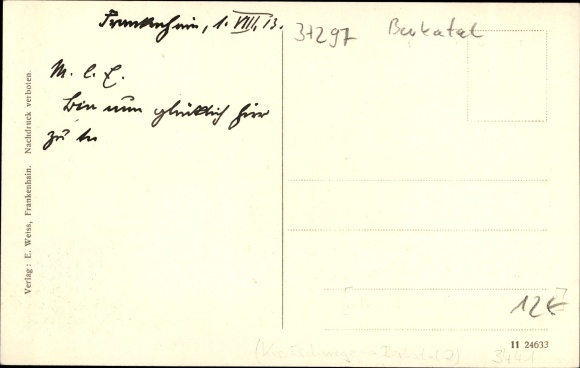 Frankenhain, 1. VIII. 13.
M. l. E.
Bin nun glücklich hier
zu
37297 Berkatal
12€
Verlag: E. Weiss, Frankenhain. Nachdruck verboten.
11 24633
3441